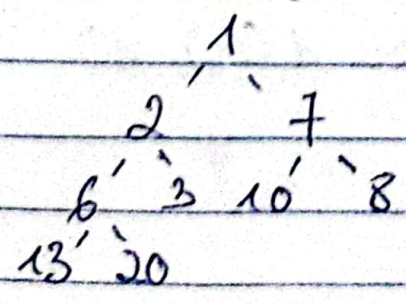 1
2 7
6 3 10 8
13 20